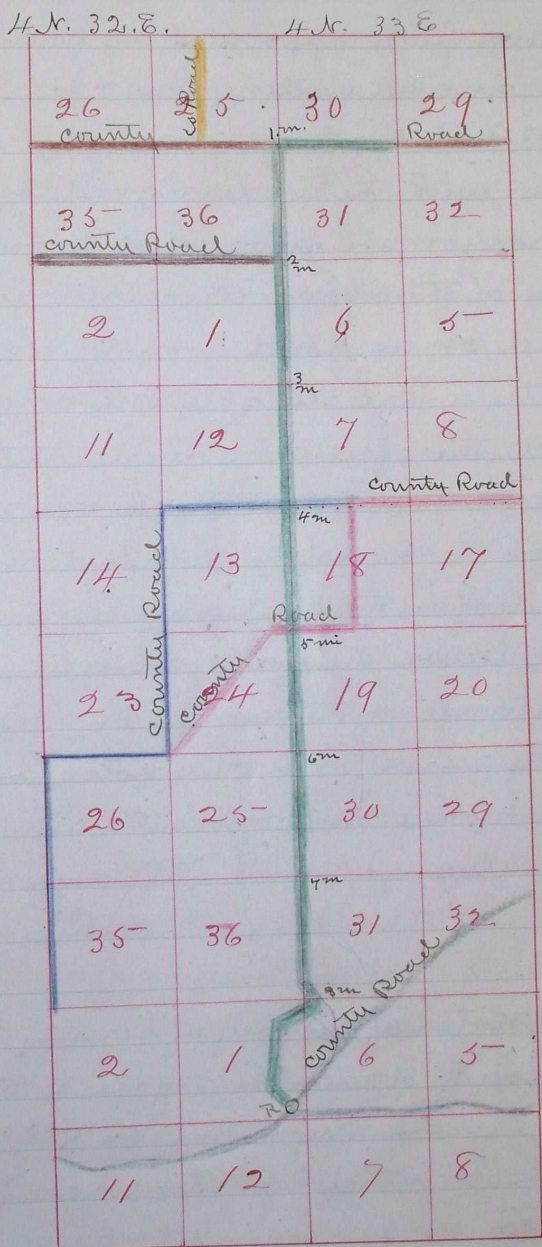 4 N. 32. E. 4 N. 33 E
26 25 30 29
Co Road
County 1 m. Road
35 36 31 32
County Road
2 m
2 1 6 5
3 m
11 12 7 8
County Road
4 m
14 13 18 17
County Road
Road
5 mi
23 24 19 20
County
6 m
26 25 30 29
7 m
35 36 31 32
8 m
County Road
2 1 6 5
R
11 12 7 8